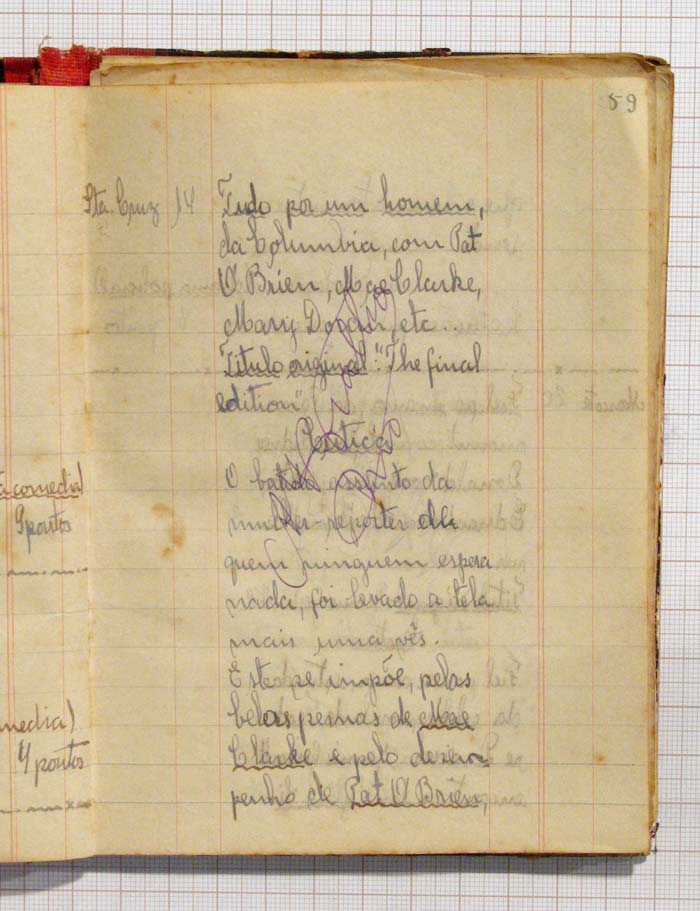 59
Sta. Cruz 14 Tudo por um homem,
da Columbia, com Pat
O'Brien, Mae Clarke,
Mary Doran, etc
Titulo original: "The final
edition"
Critica
O batido assunto da
mulher-reporter de
quem ninguem espera
nada, foi levado a téla
mais uma vês.
Este se impõe, pelas
belas pernas de Mae
Clarke e pelo desem-
penho de Pat O'Brien,
comedia)
9 pontos
media)
4 pontos